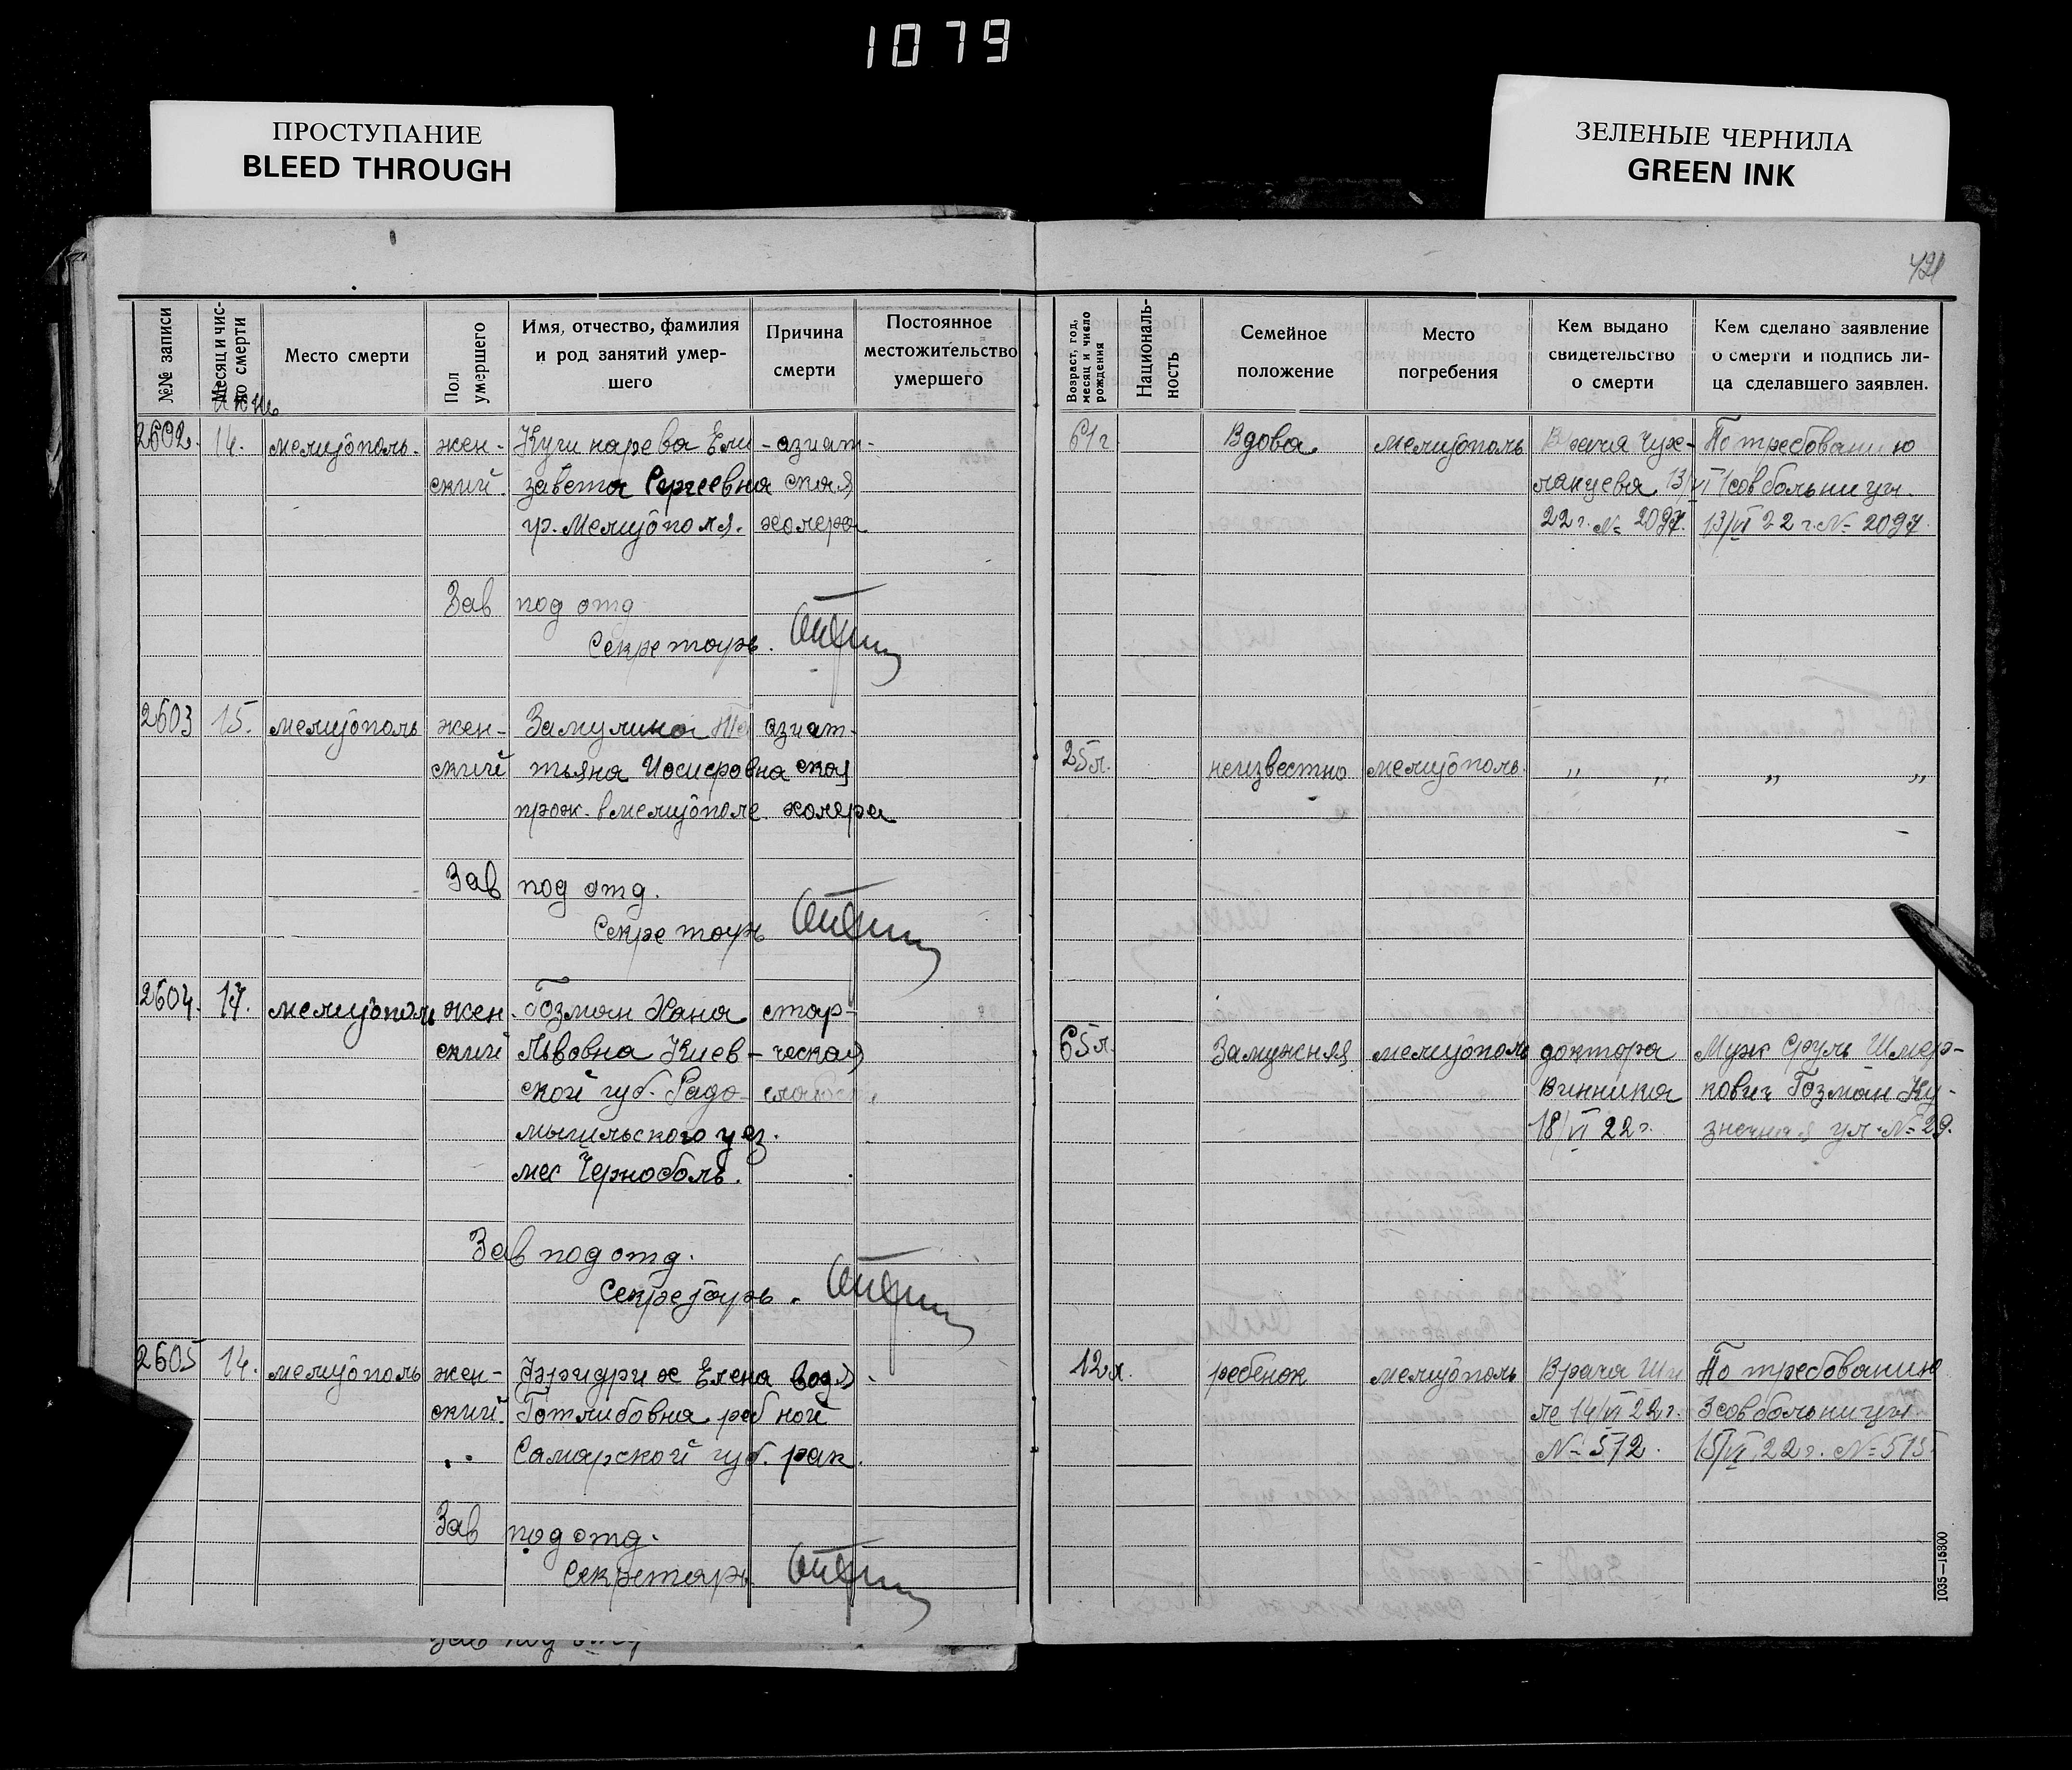 1079
ПРОСТУПАНИЕ
BLEED THROUGH
ЗЕЛЕНЫЕ ЧЕРНИЛА
GREEN INK
421
№№ записи
Месяц и чис-
ло смерти
Место смерти
Пол
умершего
Имя, отчество, фамилия
и род занятий умер-
шего
Причина
смерти
Постоянное
местожительство
умершего
Возраст, год,
месяц и число
рождения
Националь-
ность
Семейное
положение
Место
погребения
Кем выдано
свидетельство
о смерти
Кем сделано заявление
о смерти и подпись ли-
ца сделавшего заявлен.
июнь
2602. 14. мелитополь. жен- Ели- азиат- 61 г. Вдова мелитополь Врача Чух- По требованию
ский. завета Сергеевна ская 13/VI 1 совбольницы.
гр. Мелитополя. холера 22 г. № 2097. 13/VI 22 г. № 2097
Зав под отд
Секретарь.
2603 15. мелитополь жен- Замулина Та азиат-
ский тьяна Иосифовна ская 25 л. неизвестно мелитополь. " " " "
прож. в мелитополе холера
Зав под отд.
Секретарь
2604. 17. мелитополь жен- Гозман Хана стар-
ский Львовна Киев- ческая 65 л. Замужняя мелитополь доктора Муж Сруль Шмер-
ской губ. Радо- слабость Винника кович Гозман Ку-
мышльского уез. 18/VI 22 г. знечная ул. № 29.
мес Чернобыль.
Зав под отд.
Секретарь.
2605 14. мелитополь жен- Фридрих Елена водя- 12 л. ребенок мелитополь Врача По требованию
ский. Готлибовна ной 14/VI 22 г. 3 совбольницы
Самарской губ. рак. № 512. 15/VI 22 г. № 515
Зав под отд.
Секретарь
1035—15300
Зав под отд